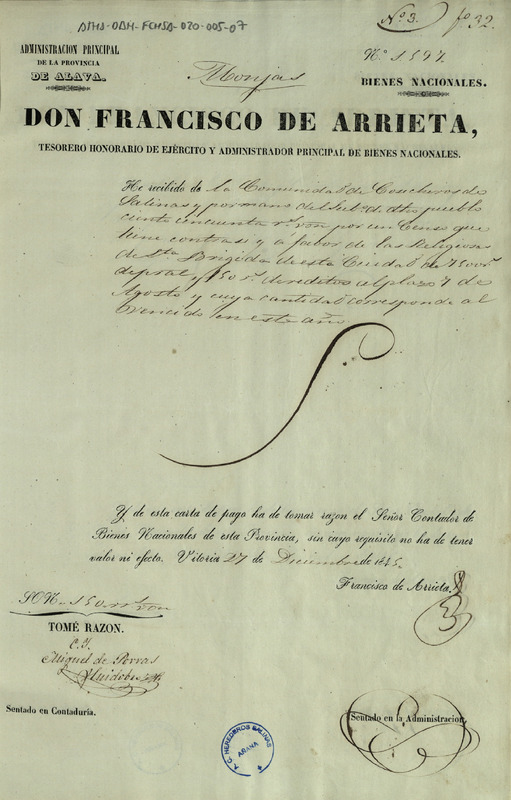 ATHA-DAH-FCHSA-020-005-07
Nº 3. fº 32.
ADMINISTRACION PRINCIPAL
DE LA PROVINCIA
DE ALAVA.
Monjas
Nº 1597.
BIENES NACIONALES.
DON FRANCISCO DE ARRIETA,
TESORERO HONORARIO DE EJÉRCITO Y ADMINISTRADOR PRINCIPAL DE BIENES NACIONALES.
He recibido de la Comunidad de Coucheros de
Salinas y por mano del de dho pueblo
ciento cincuenta rs von por un Censo que
tiene contra si y á fabor de las Religiosas
de Sta Brigida de esta Ciudad de 7500 rs
de pral y 150 rs de reditos al plazo 7 de
Agosto y cuya cantidad corresponde al
Vencido en este año.
Y de esta carta de pago ha de tomar razon el Señor Contador de
Bienes Nacionales de esta Provincia, sin cuyo requisito no ha de tener
valor ni efecto. Vitoria 27 de Diciembre de 1845.
Francisco de Arrieta.
SON 150 rs von
TOMÉ RAZON.
C. I.
Miguel de Porras
Sentado en Contaduría.
Sentado en la Administracion.
A.C. HEREDEROS SALINAS
AÑANA